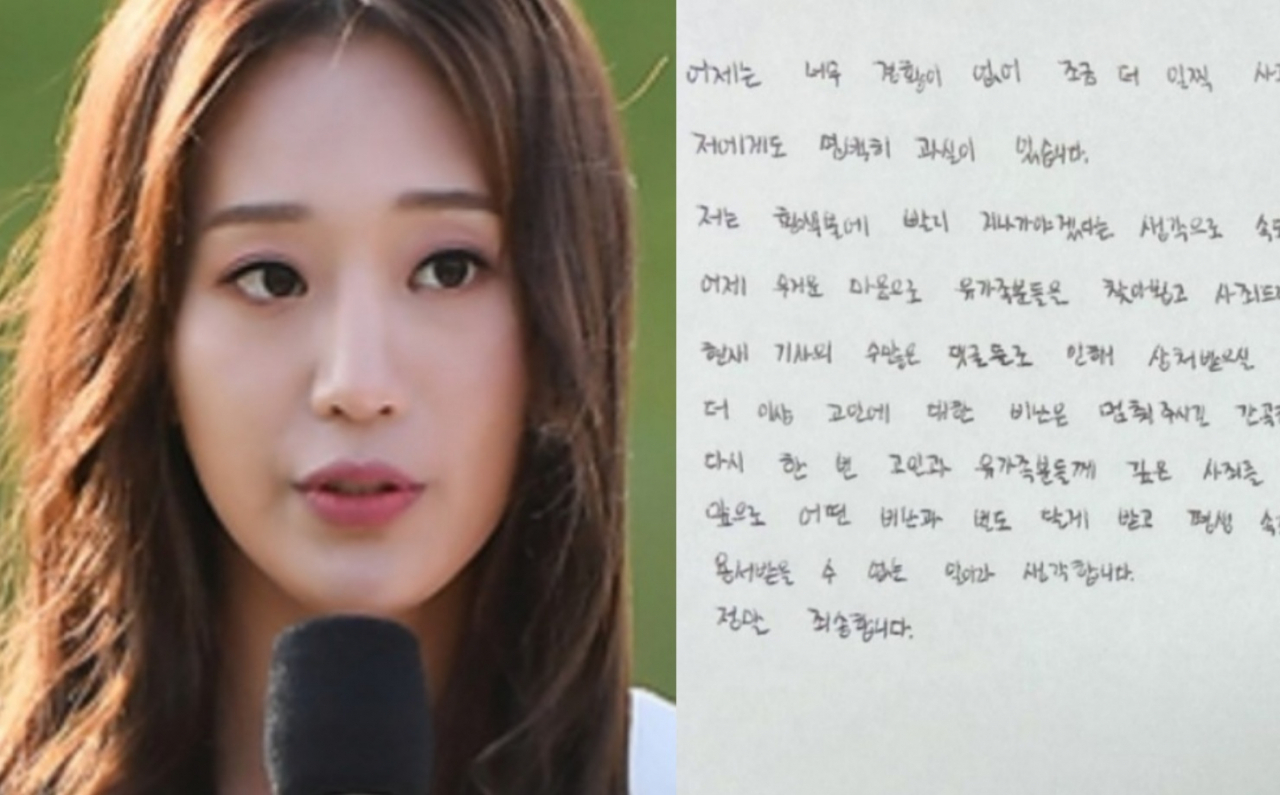 어제는 너무 경황이 없어 조금 더 일찍
저에게도 명백히 과실이 있습니다.
저는 황색불에 빨리 지나가야겠다는 생각으로
어제 무거운 마음으로 유가족분들은 찾아뵙고 사죄드
현재 기사의 수많은 댓글들로 인해 상처받으실
더 이상 고인에 대한 비난은 멈춰주시길 간곡
다시 한 번 고인과 유가족분들께 깊은 사죄를
앞으로 어떤 비난과 벌도 달게 받고 평생
용서받을 수 없는 일이라 생각합니다.
정말 죄송합니다.